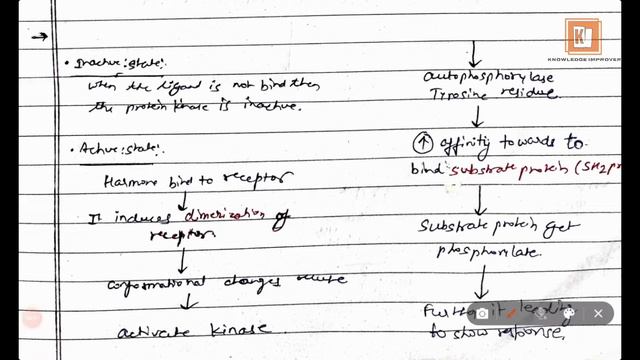 • Inactive:state:
when the ligand is not bind then
the protein kinase is inactive.
• Active:state:
Harmone bind to receptor
It induces dimerization of
receptor.
conformational changes occure
activate kinase.
autophosphorylase
Tyrosine residue.
↑ affinity towards to
bind substrate protein (SH2 pr
Substrate protein get
phosphorylate.
Further it leading
to show response.
KNOWLEDGE IMPROVER